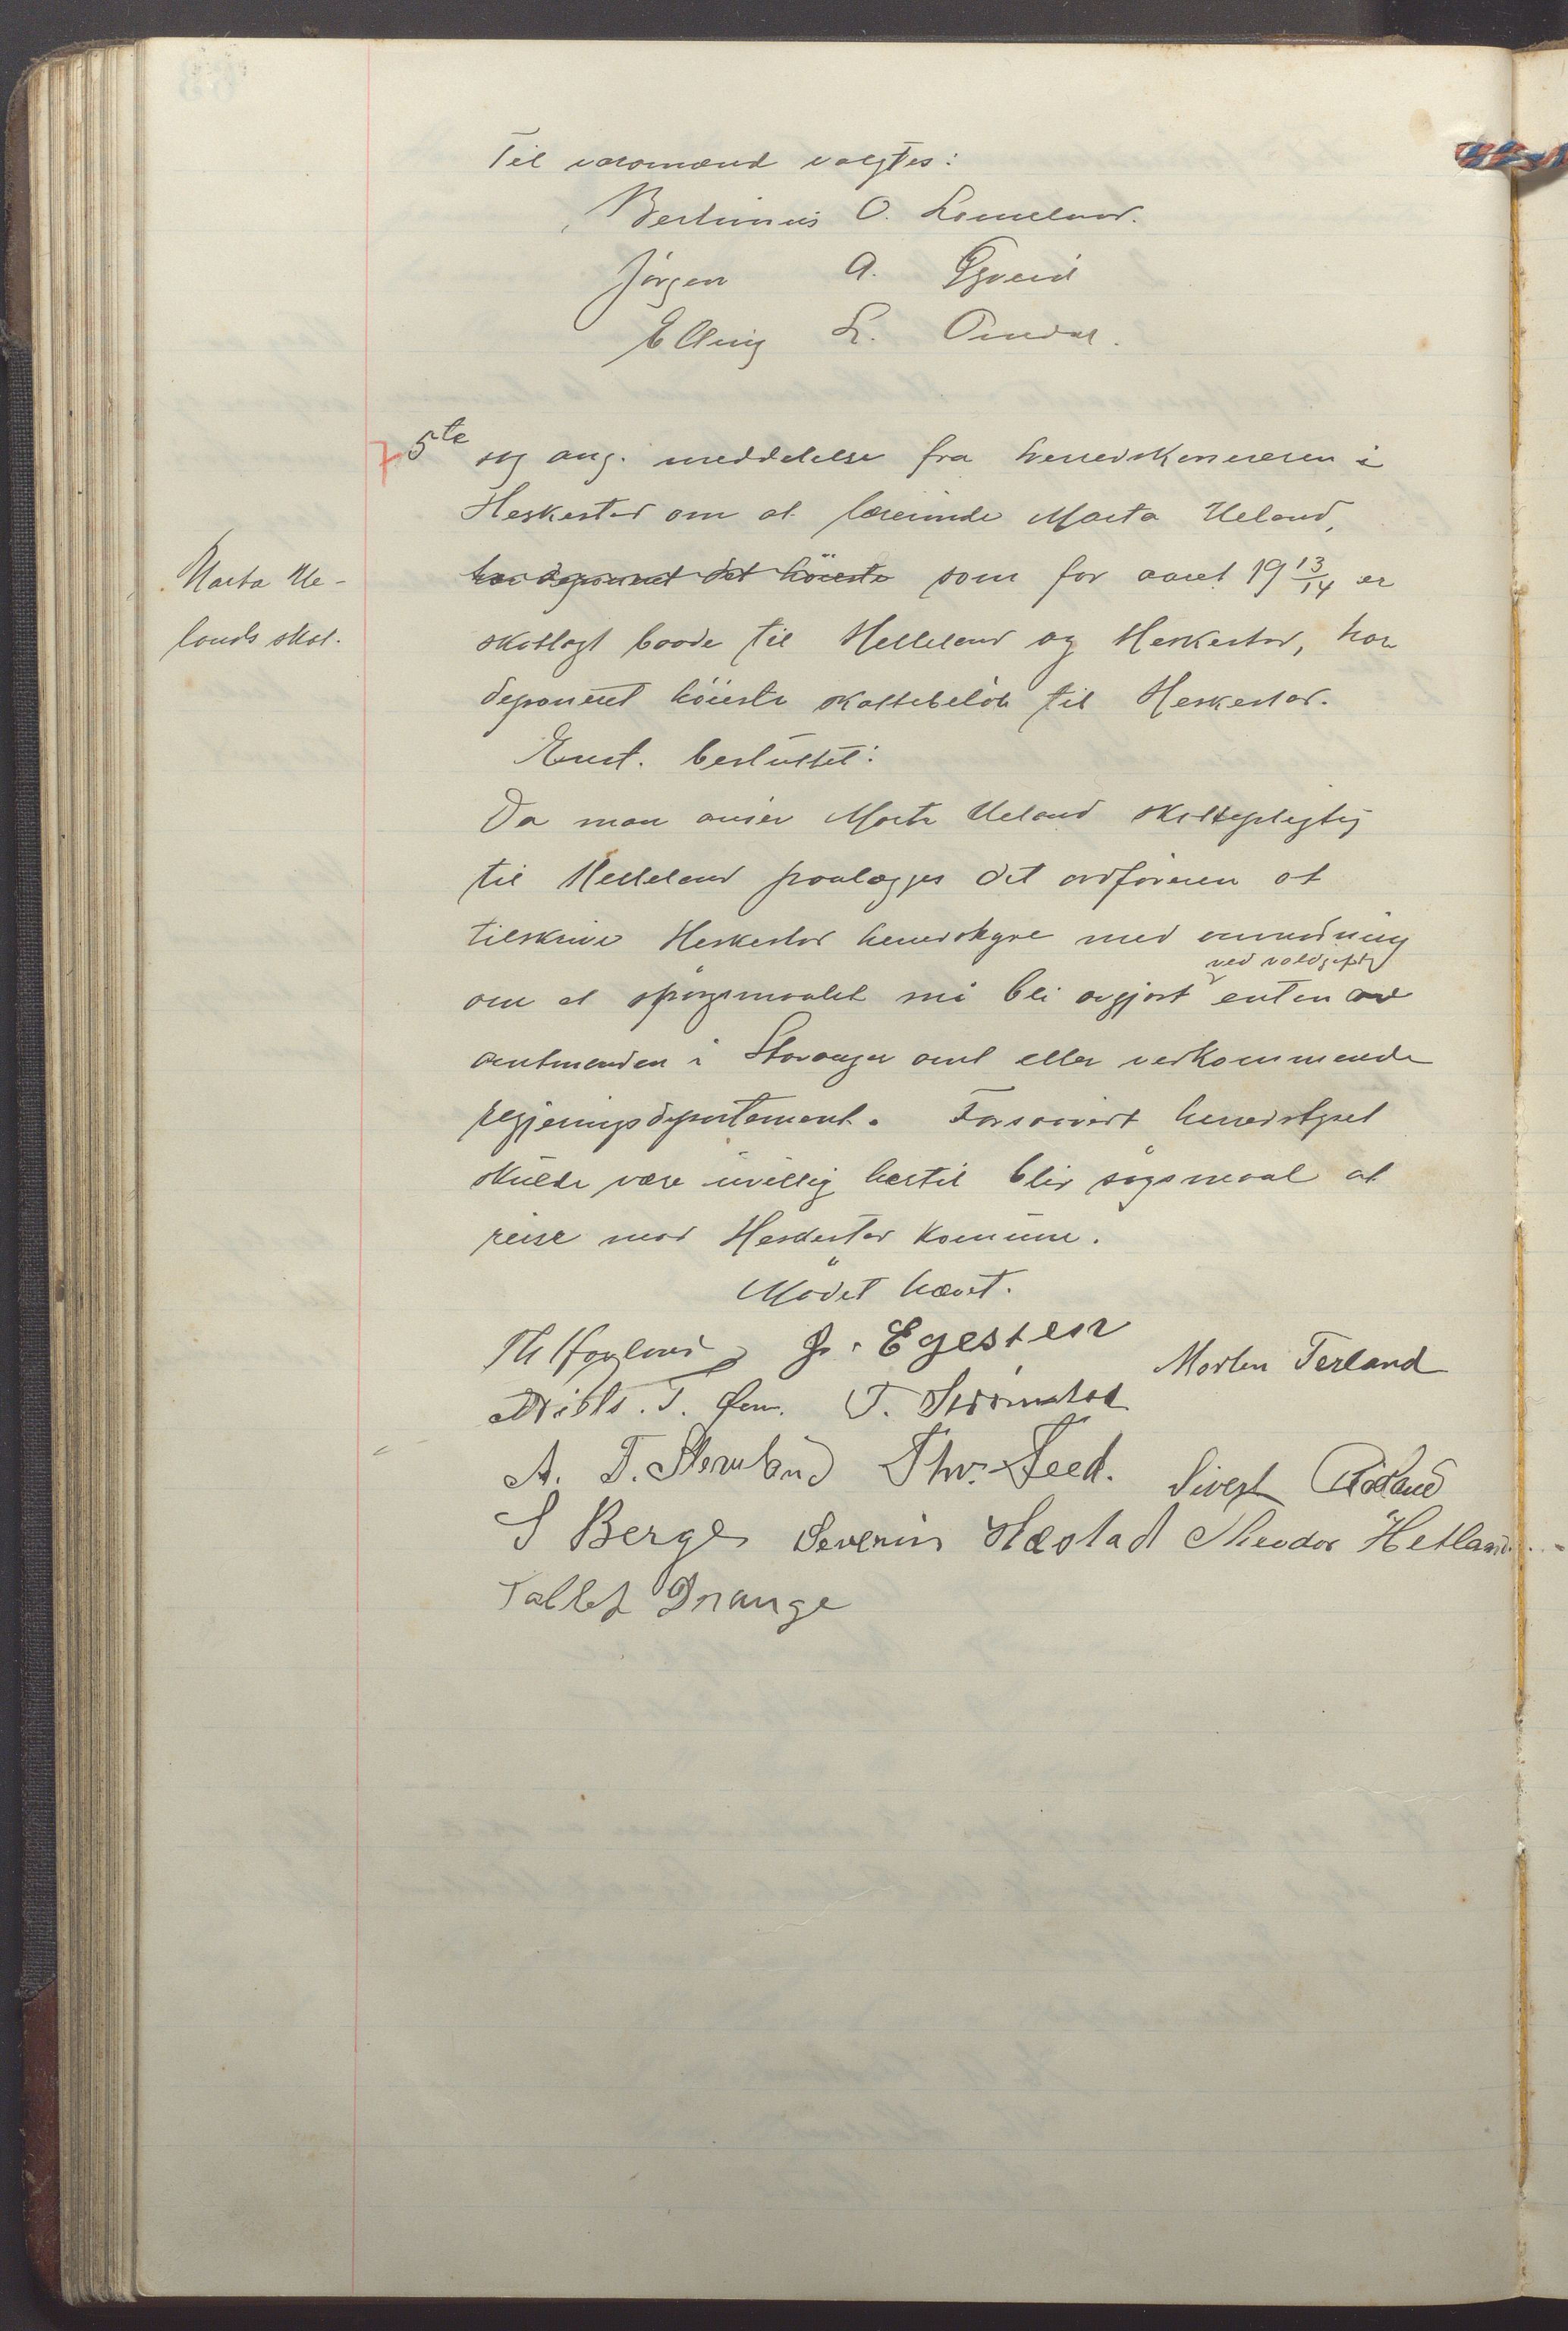 Til varamænd valgtes:
Bertinius O. Lomeland.
Jörgen A. Gyveid
Elling L. Omdal.
7 5te sag ang. meddelelse fra herredskasereren i
Heskestad om at lærerinde Marta Ueland,
Marta Ue-
lands skat.
har deponeret det höieste som for aaret 19 13/14 er
skatlagt baade til Helleland og Heskestad, har
deponeret höieste skattebelöb til Heskestad.
Enst. besluttet:
Da man anser Marta Ueland skattepligtig
til Helleland paalægges det ordföreren at
tilskrive Heskestad herredstyre med anmodning
om at spörgsmaalet må bli avgjort ved voldgift enten av
amtmanden i Stavanger amt eller vedkommende
regjeringsdepartement. Forsaavidt herredstyret
skulde være uvillig hertil blir sögsmaal at
reise mod Heskestad kommune.
Mödet hævet.
Egesten
Morten Terland
T.
A. T. Skembland Thv. Seed. Sivert
S Berge Severin Hæstad Theodor Hetland
Tallef Drange